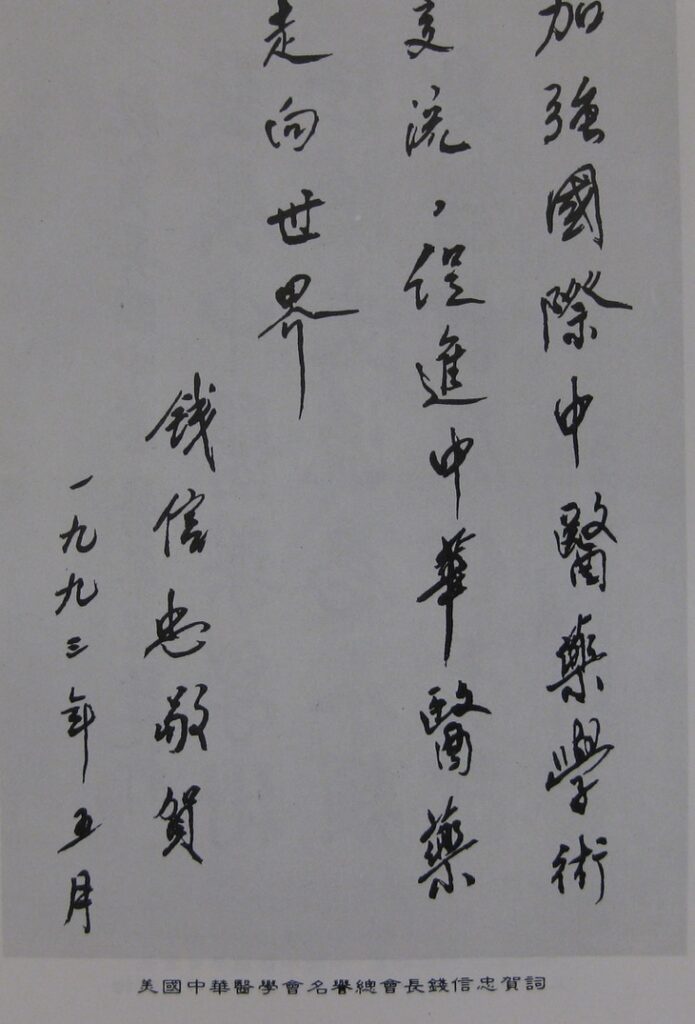 加強國際中醫藥學術
交流，促進中華醫藥
走向世界
錢信忠敬賀
一九九三年五月
美國中華醫學會名譽總會長錢信忠賀詞